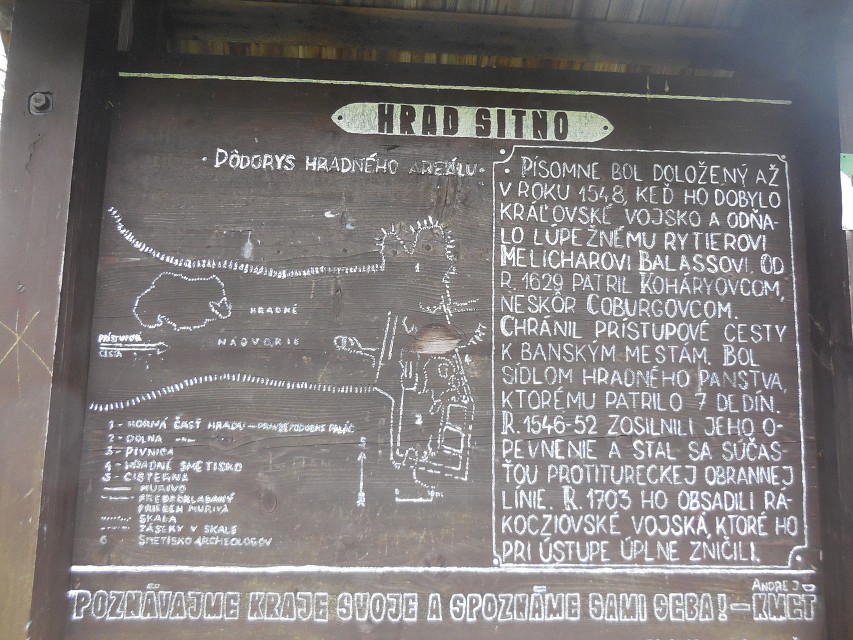 HRAD SITNO
· PÔDORYS HRADNÉHO AREÁLU ·
PÍSOMNE BOL DOLOŽENÝ AŽ
V ROKU 1548, KEĎ HO DOBYLO
KRÁĽOVSKÉ VOJSKO A ODŇA-
LO LÚPEŽNÉMU RYTIEROVI
MELICHAROVI BALASSOVI. OD
R. 1629 PATRIL KOHÁRYOVCOM,
NESKÔR COBURGOVCOM.
CHRÁNIL PRÍSTUPOVÉ CESTY
K BANSKÝM MESTÁM, BOL
SÍDLOM HRADNÉHO PANSTVA,
KTORÉMU PATRILO 7 DEDÍN.
R. 1546-52 ZOSILNILI JEHO O-
PEVNENIE A STAL SA SÚČAS-
ŤOU PROTITURECKEJ OBRANNEJ
LÍNIE. R. 1703 HO OBSADILI RÁ-
KOCZIOVSKÉ VOJSKÁ, KTORÉ HO
PRI ÚSTUPE ÚPLNE ZNIČILI.
HRADNÉ
NÁDVORIE
PRÍSTUPOVÁ
CESTA
1 - HORNÁ ČASŤ HRADU - PRAVDEPODOBNE PALÁC
2 - DOLNÁ -"-
3 - PIVNICA
4 - HRADNÉ SMETISKO
5 - CISTERNA
MURIVO
PREDPOKLADANÝ
PRIEBEH MURIVA
SKALA
ZÁSEKY V SKALE
6 SMETISKO ARCHEOLÓGOV
POZNÁVAJME KRAJE SVOJE A SPOZNÁME SAMI SEBA! - ANDREJ KMEŤ